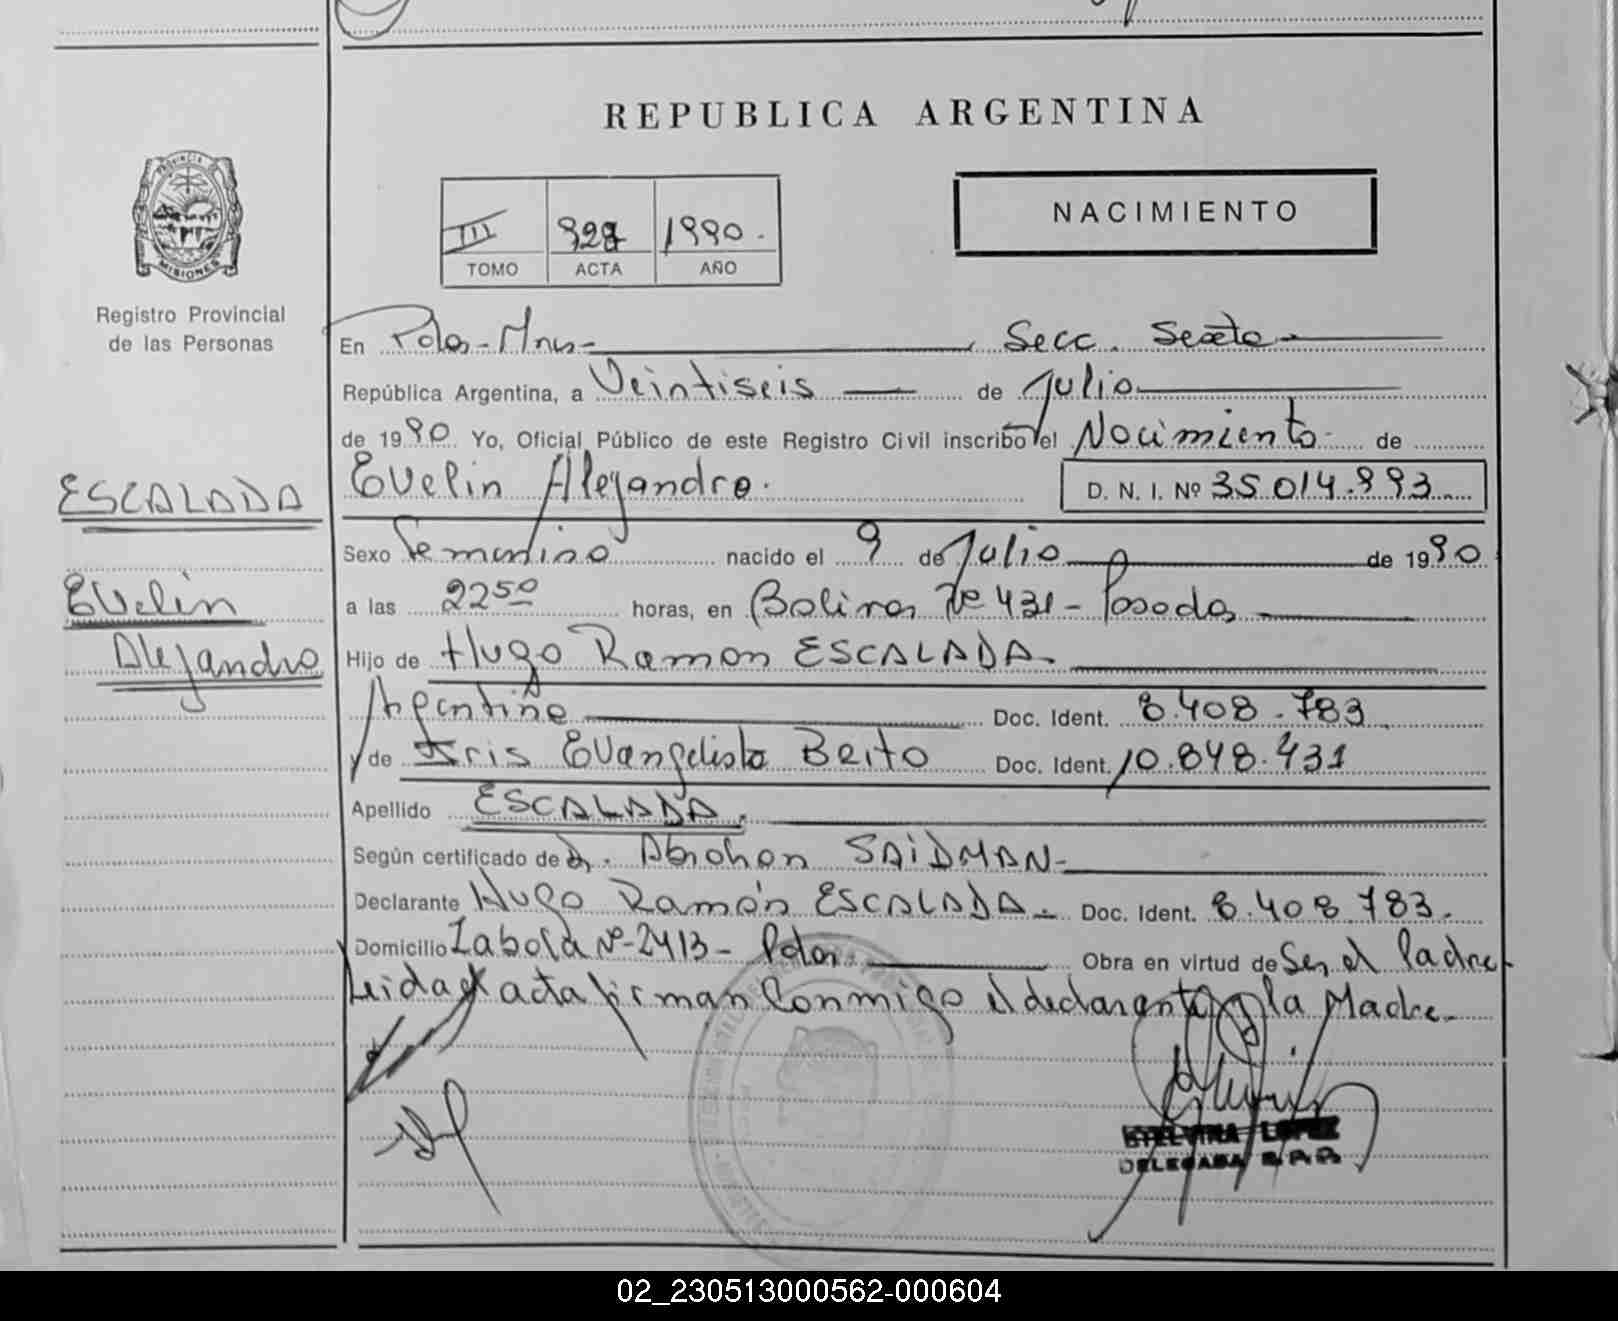 REPUBLICA ARGENTINA
PROVINCIA
MISIONES
Registro Provincial
de las Personas
III 1990.
TOMO ACTA AÑO
NACIMIENTO
En Pdas-Mnes- Secc. Sexta
República Argentina, a Veintiseis de Julio
de 1990 Yo, Oficial Público de este Registro Civil inscribo el Nacimiento de
ESCALADA
Evelin Alejandra. D. N. I. Nº 35.014.993
Sexo Femenino nacido el 9 de Julio de 1990
Evelin
Alejandra
a las 2250 horas, en Bolivar Nº 431 - Posadas
Hijo de Hugo Ramon ESCALADA
Argentino Doc. Ident. 8.408.783
y de Iris Evangelista Brito Doc. Ident. 10.848.431
Apellido ESCALADA
Según certificado de Dr. Abrahan SAIDMAN-
Declarante Hugo Ramón ESCALADA - Doc. Ident. 8.408.783.
Domicilio Zabala Nº-2413- Pdas. Obra en virtud de Ser el Padre
Leida el acta firman Conmigo el declarante y la Madre-
ETELVINA LOPEZ
DELEGADA R.P.P.
02_230513000562-000604